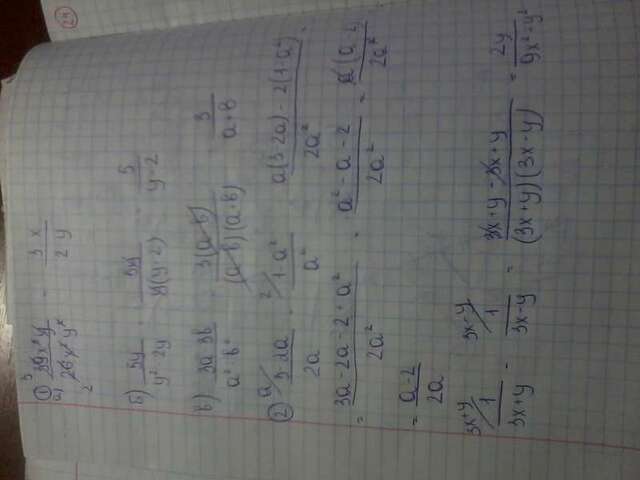 24
① а) 39x³y / 26x²y² = 3x / 2y
б) 5y / y² - 2y = 5y / y(y-2) = 5 / y-2
в) 3a-3b / a²-b² = 3(a-b) / (a-b)(a+b) = 3 / a+b
② 3-2a / 2a - 1-a² / a² = a(3-2a) - 2(1-a²) / 2a²
= 3a-2a-2+a² / 2a² = a²-a-2 / 2a² =
= a-2 / 2a
1 / 3x+y - 1 / 3x-y = 3x+y-3x+y / (3x+y)(3x-y) = 2y / 9x²-y²